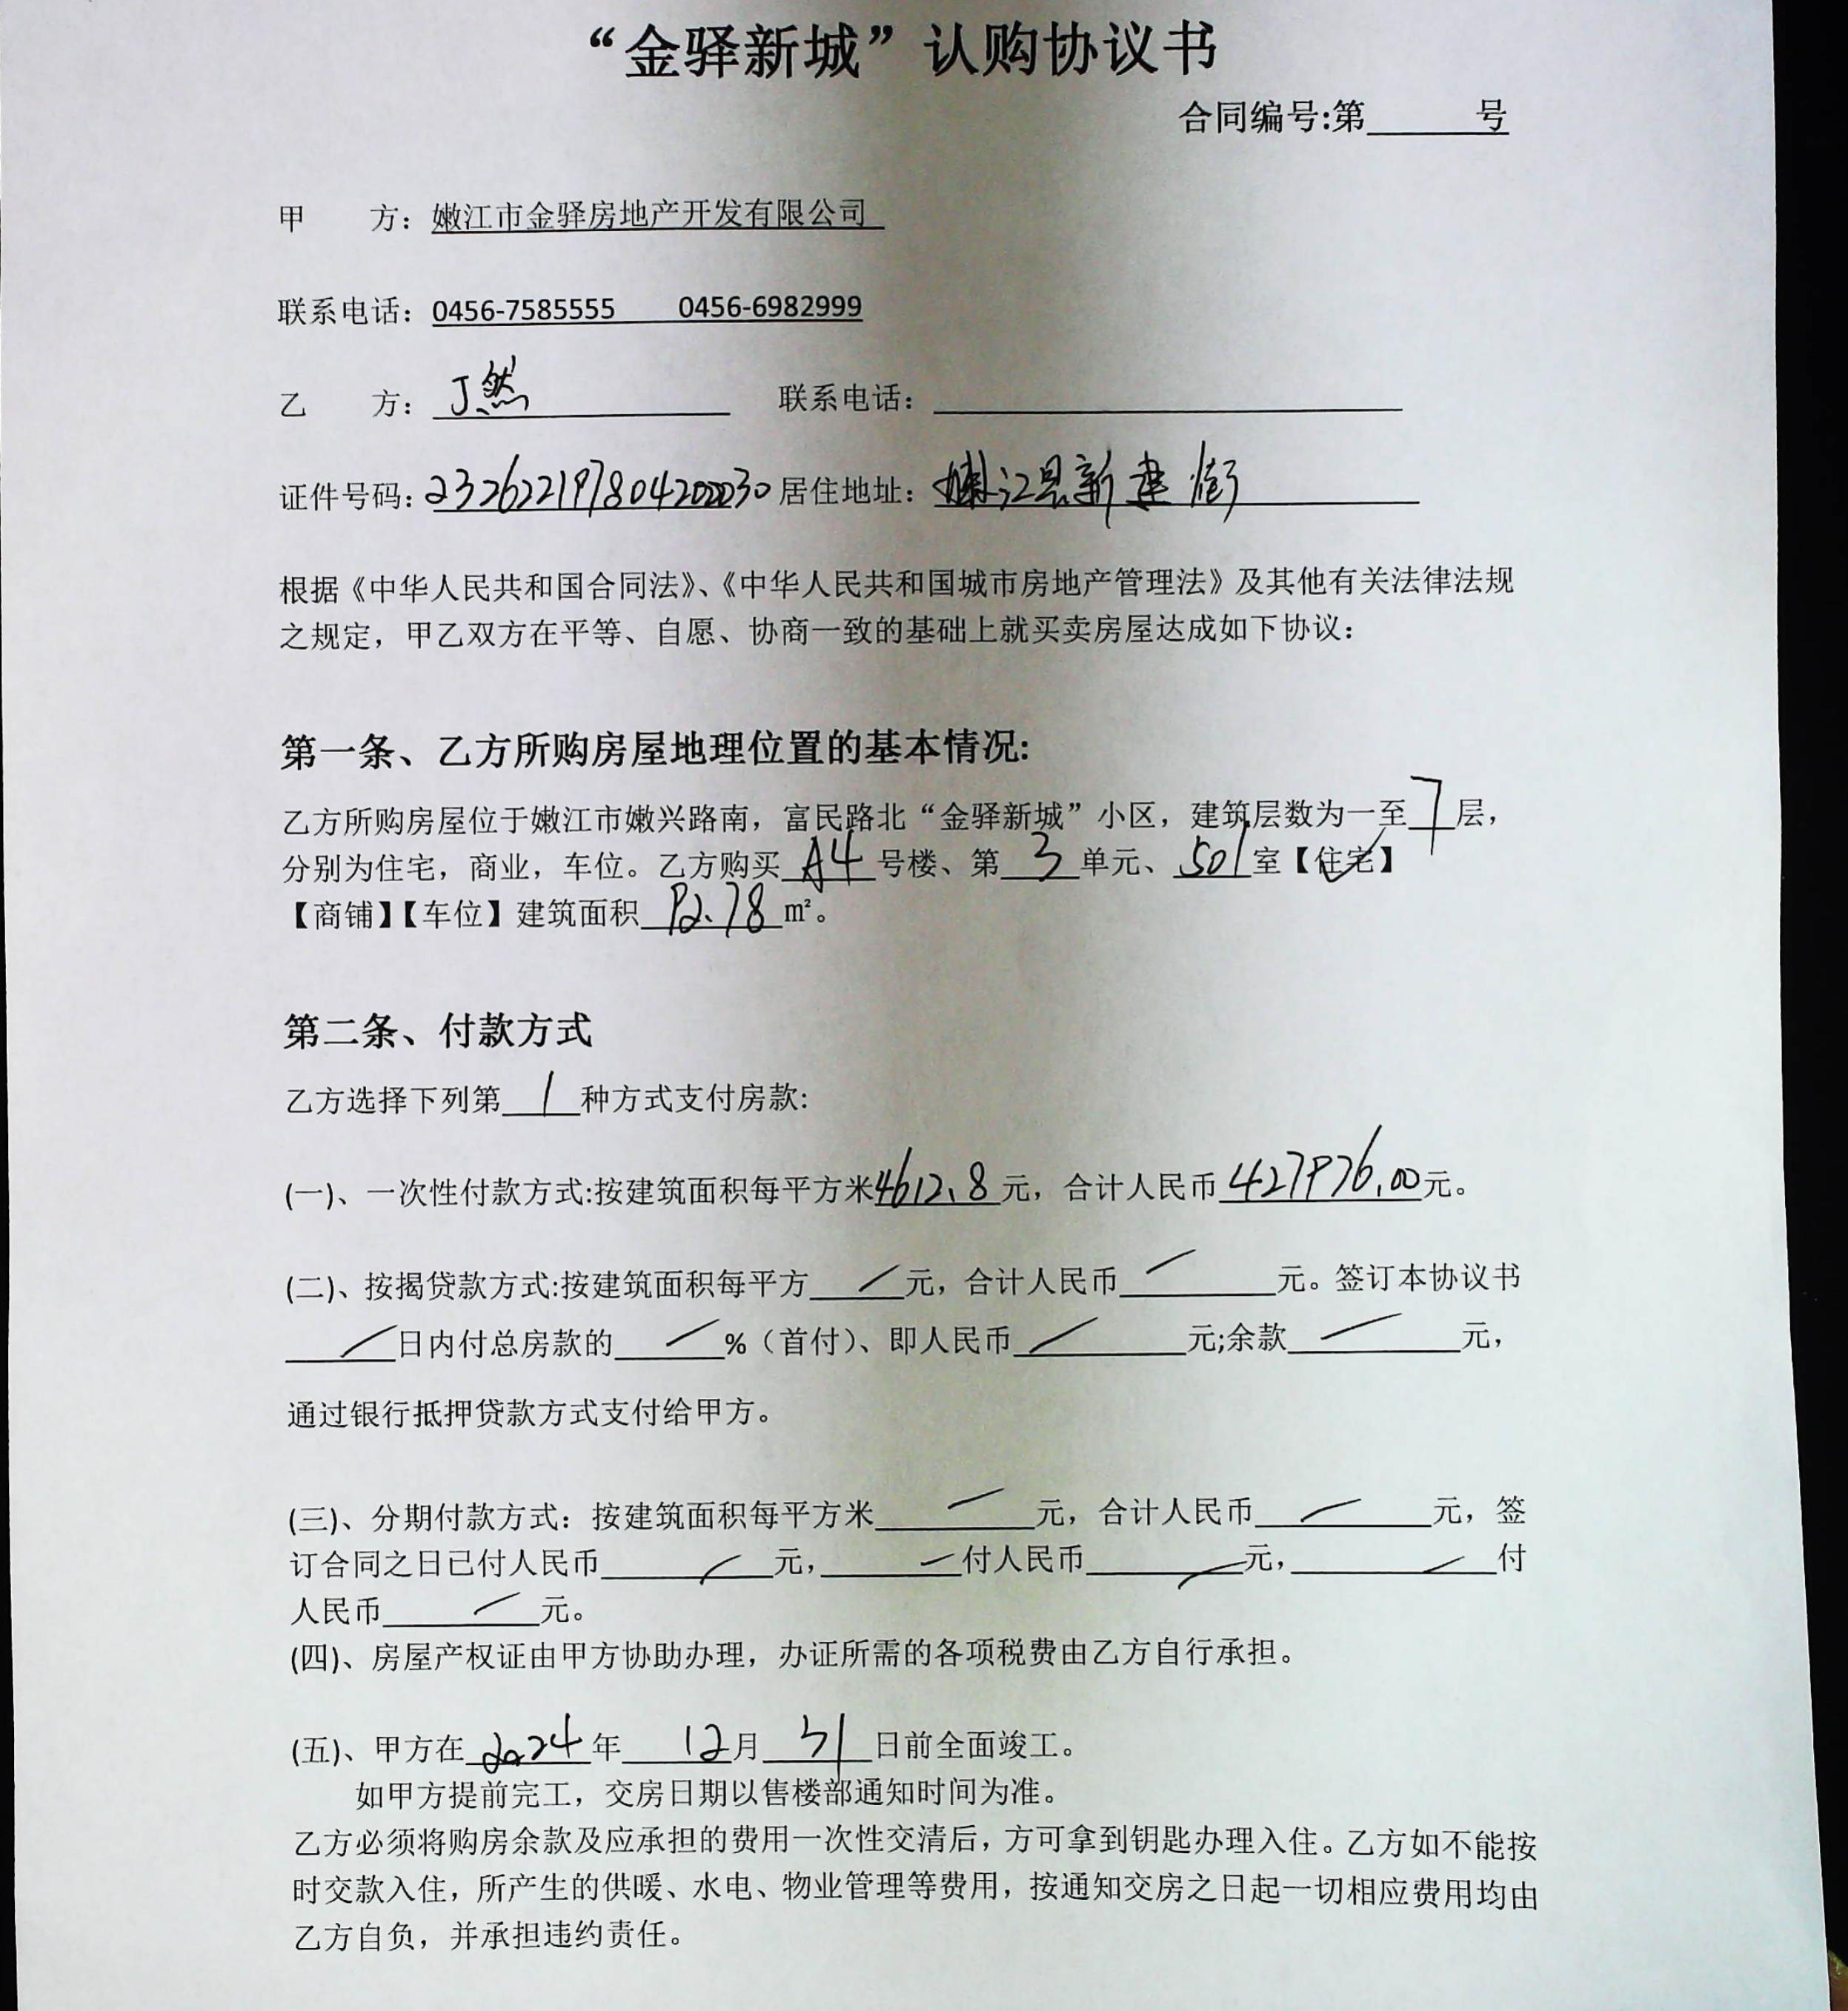 “金驿新城”认购协议书
合同编号:第______号
甲 方：嫩江市金驿房地产开发有限公司
联系电话：0456-7585555 0456-6982999
乙 方：丁然 联系电话：
证件号码： 居住地址：嫩江县新建街
根据《中华人民共和国合同法》、《中华人民共和国城市房地产管理法》及其他有关法律法规
之规定，甲乙双方在平等、自愿、协商一致的基础上就买卖房屋达成如下协议：
第一条、乙方所购房屋地理位置的基本情况:
乙方所购房屋位于嫩江市嫩兴路南，富民路北“金驿新城”小区，建筑层数为一至7层，
分别为住宅，商业，车位。乙方购买A4号楼、第3单元、501室【住宅】✓
【商铺】【车位】建筑面积92.78㎡。
第二条、付款方式
乙方选择下列第1种方式支付房款:
(一)、一次性付款方式:按建筑面积每平方米4612.8元，合计人民币427976.00元。
(二)、按揭贷款方式:按建筑面积每平方/元，合计人民币/元。签订本协议书
/日内付总房款的/%（首付）、即人民币/元;余款/元，
通过银行抵押贷款方式支付给甲方。
(三)、分期付款方式：按建筑面积每平方米/元，合计人民币/元，签
订合同之日已付人民币/元，/付人民币/元，/付
人民币/元。
(四)、房屋产权证由甲方协助办理，办证所需的各项税费由乙方自行承担。
(五)、甲方在2024年12月31日前全面竣工。
如甲方提前完工，交房日期以售楼部通知时间为准。
乙方必须将购房余款及应承担的费用一次性交清后，方可拿到钥匙办理入住。乙方如不能按
时交款入住，所产生的供暖、水电、物业管理等费用，按通知交房之日起一切相应费用均由
乙方自负，并承担违约责任。